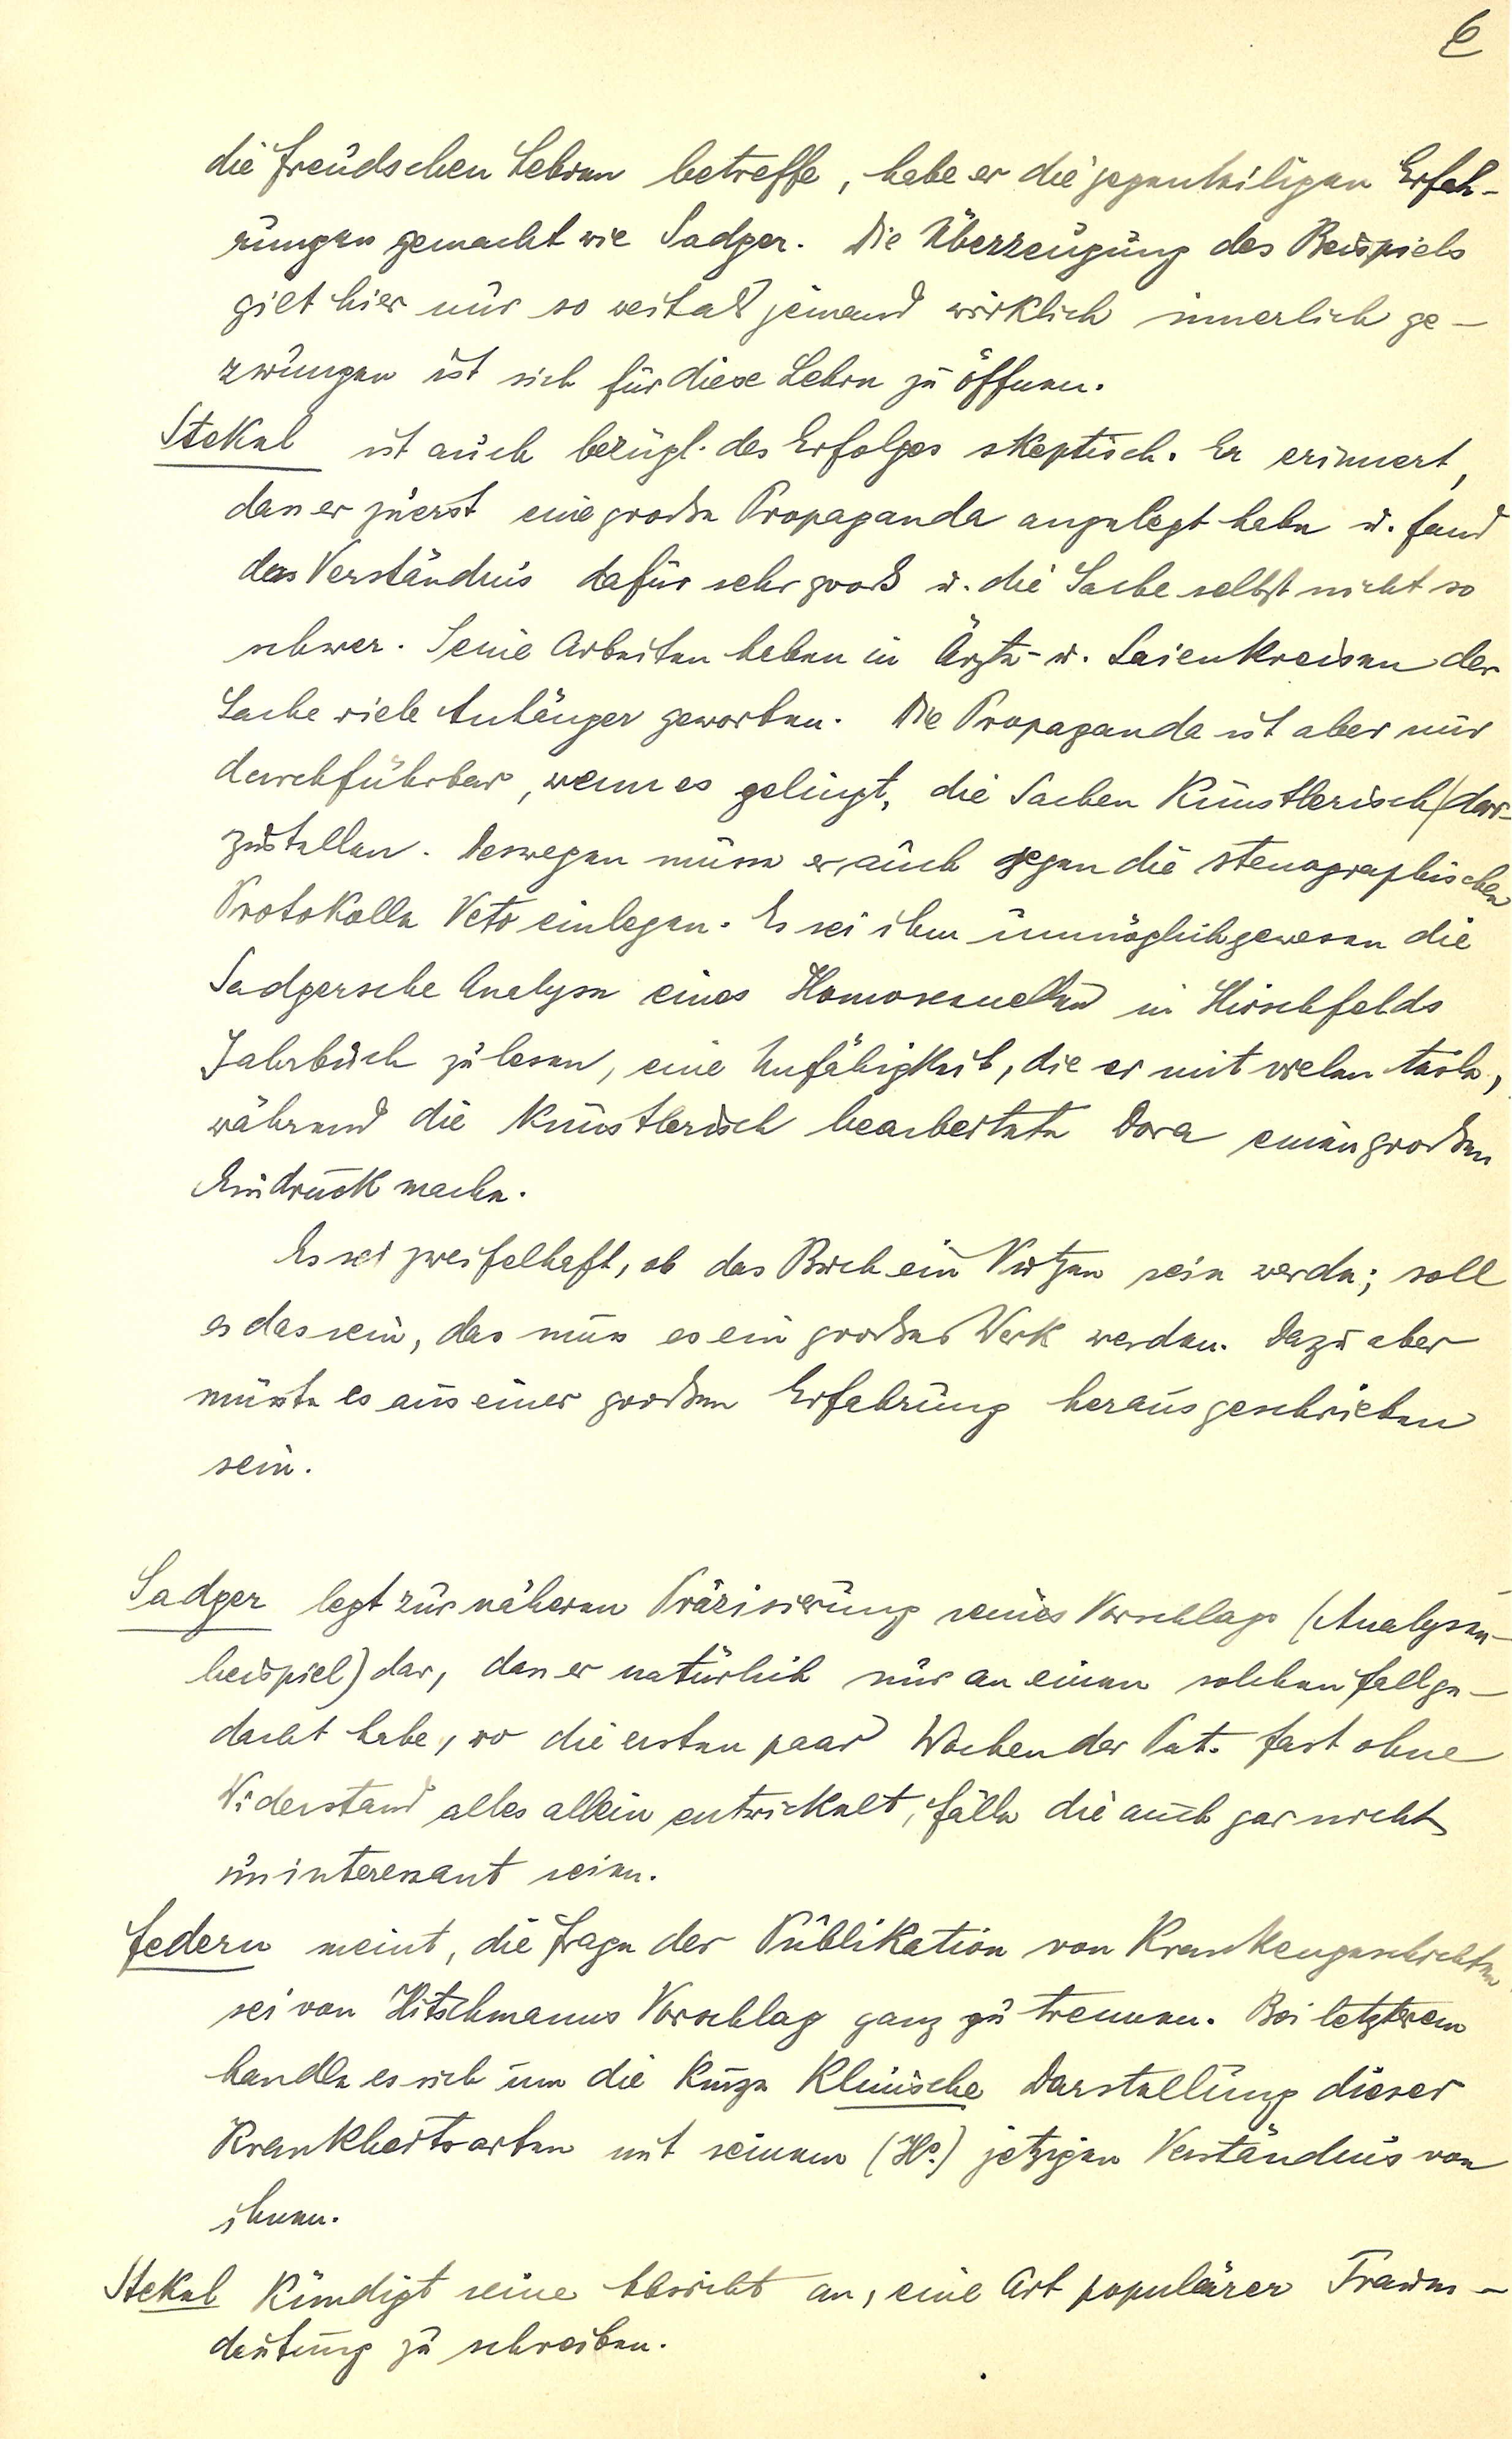 6
die Freudschen Lehren betreffe, habe er die gegenteiligen Erfah-
rungen gemacht wie Sadger. Die Überzeugung des Beispiels
gilt hier nur so weit als jemand wirklich innerlich ge-
zwungen ist sich für diese Lehre zu öffnen.
Stekel ist auch bezügl. des Erfolges skeptisch. Er erinnert,
dass er zuerst eine große Propaganda angelegt habe u. fand
das Verständnis dafür sehr groß u. die Sache selbst nicht so
schwer. Seine Arbeiten haben in Ärzte- u. Laienkreisen der
Sache viele Anhänger geworben. Die Propaganda ist aber nur
durchführbar, wenn es gelingt, die Sachen künstlerisch dar-
zustellen. Deswegen müsse er auch gegen die stenographischen
Protokolle Veto einlegen. Es sei ihm unmöglich gewesen die
Sadgersche Analyse eines Homosexuellen in Hirschfelds
Jahrbuch zu lesen, eine Unfähigkeit, die er mit vielen teile,
während die künstlerisch bearbeitete Dora einen großen
Eindruck mache.
Es sei zweifelhaft, ob das Buch ein Nutzen sein werde; soll
es das sein, das muss es ein großes Werk werden. Dazu aber
müsste es aus einer großen Erfahrung herausgeschrieben
sein.
Sadger legt zur näheren Präzisierung seines Vorschlags (Analysen-
beispiel) dar, dass er natürlich nur an einen solchen Fall ge-
dacht habe, wo die ersten paar Wochen der Pat. fast ohne
Widerstand alles allein entwickelt, Fälle die auch gar nicht
uninteressant seien.
Federn meint, die Frage der Publikation von Krankengeschichten
sei von Hitschmanns Vorschlag ganz zu trennen. Bei letzterem
handle es sich um die kurze klinische Darstellung dieser
Krankheitsarten mit seinem (H.) jetzigen Verständnis von
ihnen.
Stekel kündigt seine Absicht an, eine Art populärer Traum-
deutung zu schreiben.